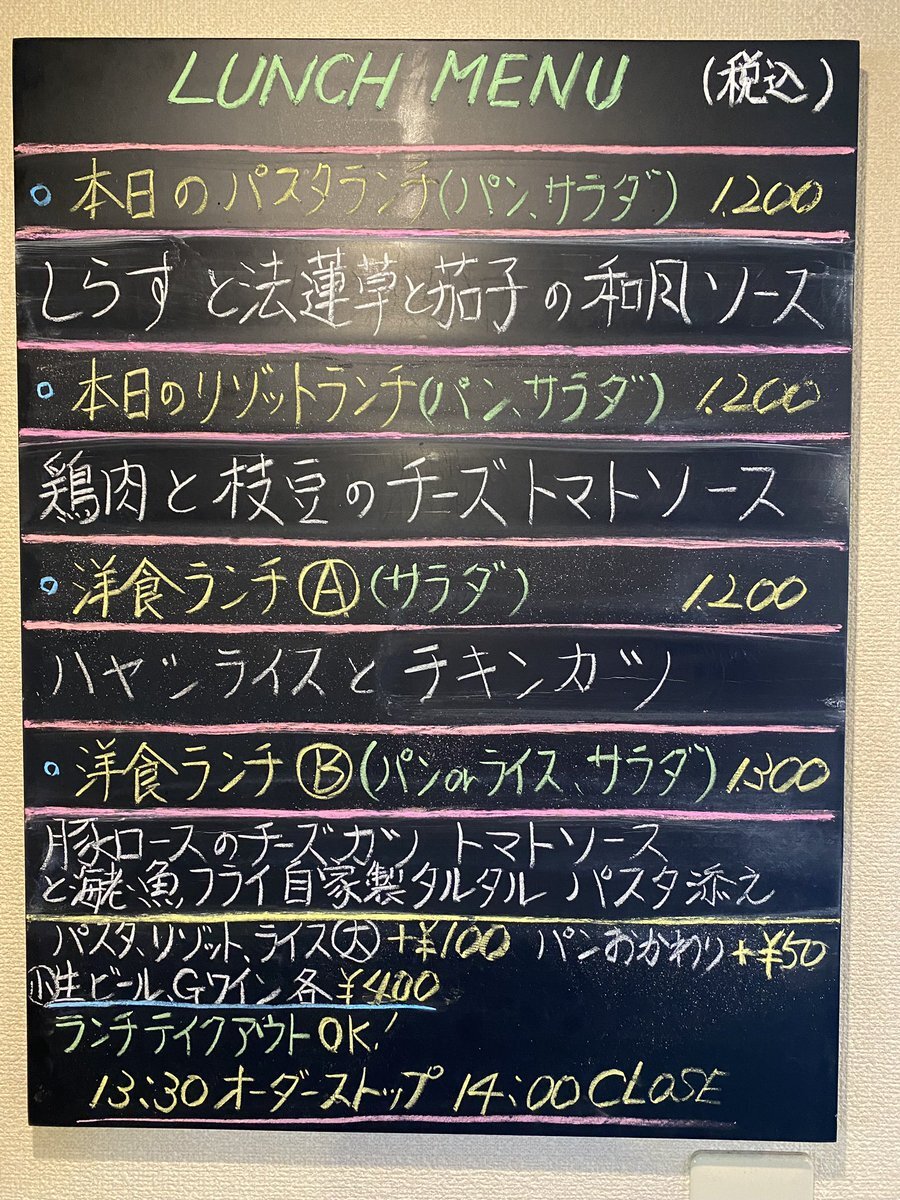 LUNCH MENU (税込)
本日のパスタランチ(パン、サラダ) 1.200
しらすと法蓮草と茄子の和風ソース
本日のリゾットランチ(パン、サラダ) 1.200
鶏肉と枝豆のチーズトマトソース
洋食ランチⒶ(サラダ) 1.200
ハヤシライスとチキンカツ
洋食ランチⒷ(パンorライス、サラダ) 1.300
豚ロースのチーズカツ トマトソース
と海老、魚フライ自家製タルタル パスタ添え
パスタ、リゾット、ライス(大)+¥100 パンおかわり+¥50
(小)生ビール、Gワイン各¥400
ランチテイクアウトOK!
13:30オーダーストップ 14:00CLOSE